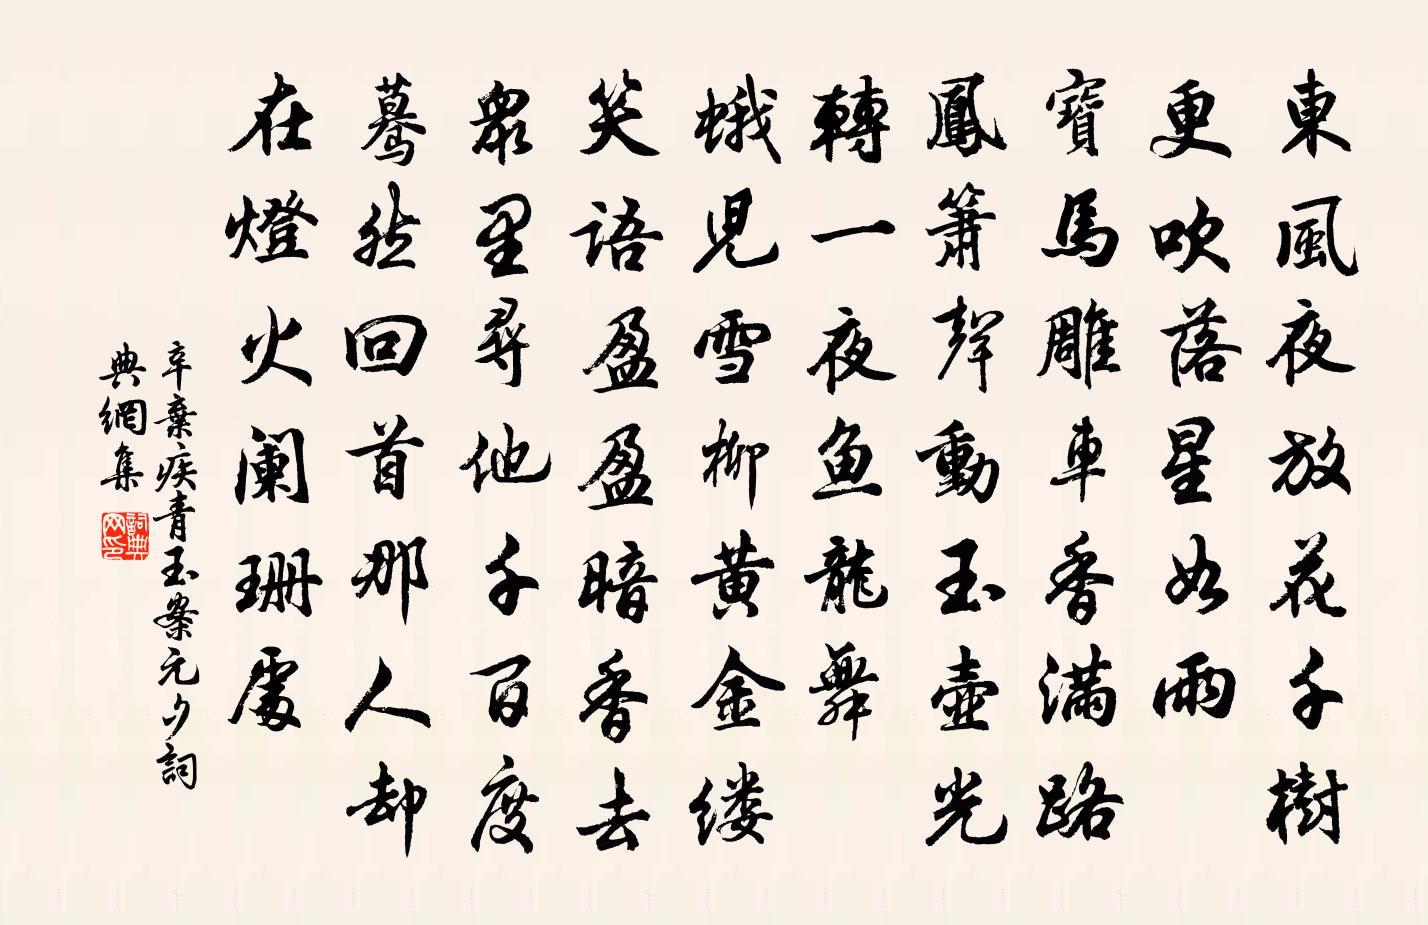 東風夜放花千樹
更吹落星如雨
寶馬雕車香滿路
鳳簫聲動玉壺光
轉一夜魚龍舞
蛾兒雪柳黃金缕
笑語盈盈暗香去
眾里尋他千百度
驀然回首那人却
在燈火阑珊處
辛棄疾青玉案元夕詞
典網集
詞典
网印